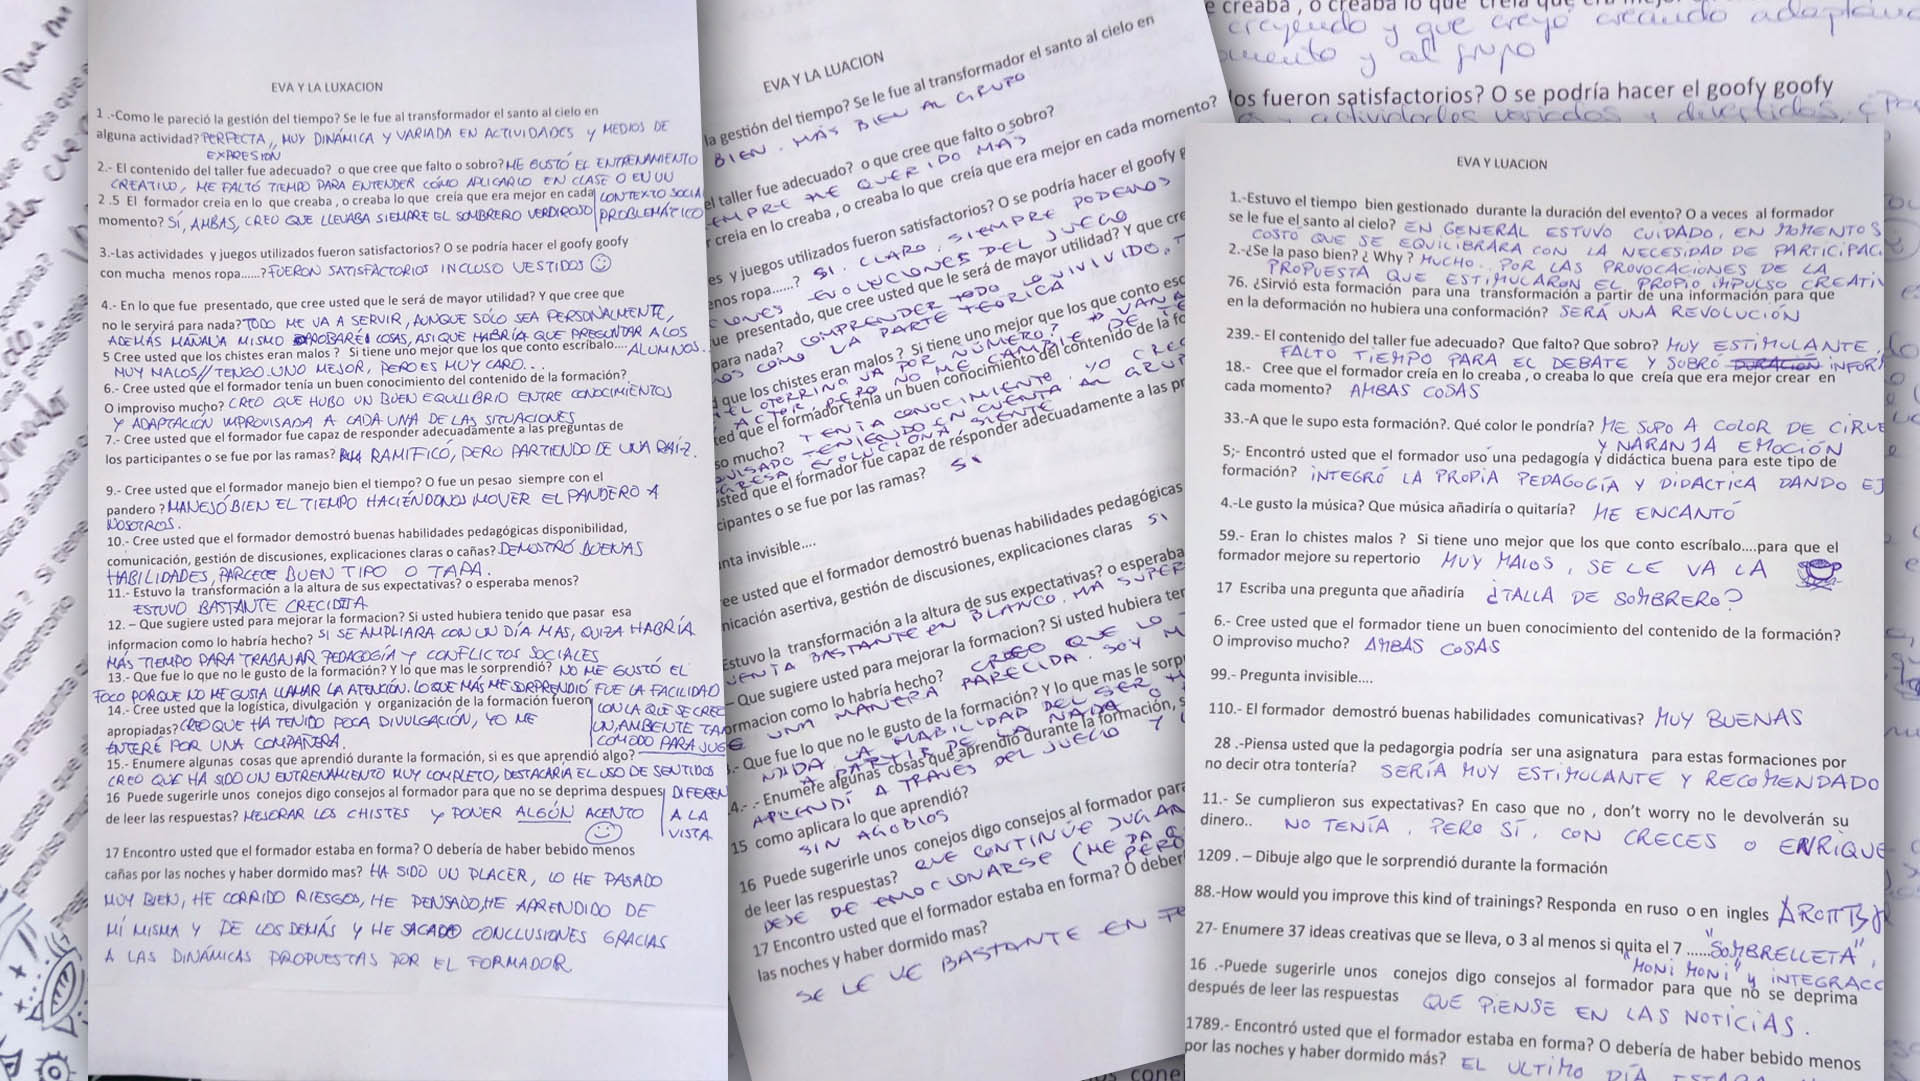 EVA Y LA LUXACION
1 .-Como le pareció la gestión del tiempo? Se le fue al transformador el santo al cielo en
alguna actividad? PERFECTA,, MUY DINÁMICA Y VARIADA EN ACTIVIDADES Y MEDIOS DE
EXPRESIÓN
2.- El contenido del taller fue adecuado? o que cree que falto o sobro? ME GUSTÓ EL ENTRENAMIENTO
CREATIVO, ME FALTÓ TIEMPO PARA ENTENDER CÓMO APLICARLO EN CLASE O EN UN
2 .5 El formador creia en lo que creaba , o creaba lo que creía que era mejor en cada CONTEXTO SOCIAL
momento? SÍ, AMBAS, CREO QUE LLEVABA SIEMPRE EL SOMBRERO VERDIROJO PROBLEMÁTICO
3.-Las actividades y juegos utilizados fueron satisfactorios? O se podría hacer el goofy goofy
con mucha menos ropa......? FUERON SATISFACTORIOS INCLUSO VESTIDOS
4.- En lo que fue presentado, que cree usted que le será de mayor utilidad? Y que cree que
no le servirá para nada? TODO ME VA A SERVIR, AUNQUE SÓLO SEA PERSONALMENTE,
ADEMÁS MAÑANA MISMO PROBARÉ COSAS, ASI QUE HABRÍA QUE PREGUNTAR A LOS
5 Cree usted que los chistes eran malos ? Si tiene uno mejor que los que conto escríbalo.... ALUMNOS.
MUY MALOS// TENGO UNO MEJOR, PERO ES MUY CARO...
6.- Cree usted que el formador tenía un buen conocimiento del contenido de la formación?
O improviso mucho? CREO QUE HUBO UN BUEN EQUILIBRIO ENTRE CONOCIMIENTOS
Y ADAPTACIÓN IMPROVISADA A CADA UNA DE LAS SITUACIONES
7.- Cree usted que el formador fue capaz de responder adecuadamente a las preguntas de
los participantes o se fue por las ramas? RAMIFICÓ, PERO PARTIENDO DE UNA RAÍZ.
9.- Cree usted que el formador manejo bien el tiempo? O fue un pesao siempre con el
pandero ? MANEJÓ BIEN EL TIEMPO HACIÉNDONOS MOVER EL PANDERO A
NOSOTROS.
10.- Cree usted que el formador demostró buenas habilidades pedagógicas disponibilidad,
comunicación, gestión de discusiones, explicaciones claras o cañas? DEMOSTRÓ BUENAS
HABILIDADES, PARECE BUEN TIPO O TAPA.
11.- Estuvo la transformación a la altura de sus expectativas? o esperaba menos?
ESTUVO BASTANTE CRECIDITA
12. – Que sugiere usted para mejorar la formacion? Si usted hubiera tenido que pasar esa
informacion como lo habría hecho? SI SE AMPLIARA CON UN DÍA MAS, QUIZA HABRÍA
MÁS TIEMPO PARA TRABAJAR PEDAGOGÍA Y CONFLICTOS SOCIALES
13.- Que fue lo que no le gusto de la formación? Y lo que mas le sorprendió? NO ME GUSTÓ EL
FOCO PORQUE NO ME GUSTA LLAMAR LA ATENCIÓN. LO QUE MÁS ME SORPRENDIÓ FUE LA FACILIDAD
14.- Cree usted que la logística, divulgación y organización de la formación fueron CON LA QUE SE CREÓ
apropiadas? CREO QUE HA TENIDO POCA DIVULGACIÓN, YO ME UN AMBIENTE TAN
ENTERÉ POR UNA COMPAÑERA. COMODO PARA JUG
15.- Enumere algunas cosas que aprendió durante la formación, si es que aprendió algo?
CREO QUE HA SIDO UN ENTRENAMIENTO MUY COMPLETO, DESTACARIA EL USO DE SENTIDOS
16 Puede sugerirle unos conejos digo consejos al formador para que no se deprima despues DIFEREN
de leer las respuestas? MEJORAR LOS CHISTES Y PONER ALGÚN ACENTO A LA
VISTA.
17 Encontro usted que el formador estaba en forma? O debería de haber bebido menos
cañas por las noches y haber dormido mas? HA SIDO UN PLACER, LO HE PASADO
MUY BIEN, HE CORRIDO RIESGOS, HE PENSADO, HE APRENDIDO DE
MÍ MISMA Y DE LOS DEMÁS Y HE SACADO CONCLUSIONES GRACIAS
A LAS DINÁMICAS PROPUESTAS POR EL FORMADOR
EVA Y LA LUACION
la gestión del tiempo? Se le fue al transformador el santo al cielo en
BIEN. MÁS BIEN AL GRUPO
el taller fue adecuado? o que cree que falto o sobro?
EMPRE HE QUERIDO MÁS
r creia en lo creaba , o creaba lo que creía que era mejor en cada momento?
es y juegos utilizados fueron satisfactorios? O se podría hacer el goofy g
enos ropa......? SI. CLARO. SIEMPRE PODEMOS
CIONES EVOLUCIONES DEL JUEGO
ue presentado, que cree usted que le será de mayor utilidad? Y que cre
para nada? COMPRENDER TODO LO VIVIVIDO.
COMO LA PARTE TEÓRICA
d que los chistes eran malos ? Si tiene uno mejor que los que conto esc
EL OTERRINO VA POR NÚMERO?
ACTOR PERO NO ME CAMBIE DE
ted que el formador tenía un buen conocimiento del contenido de la fo
so mucho? TENÍA CONOCIMIENTO. YO CREO
VISADO TENIENDO EN CUENTA AL GRUP
GRESA, EVOLUCIONA, SIENTE
usted que el formador fue capaz de responder adecuadamente a las pr
cipantes o se fue por las ramas? SI
nta invisible....
ee usted que el formador demostró buenas habilidades pedagógicas
nicación asertiva, gestión de discusiones, explicaciones claras SI
Estuvo la transformación a la altura de sus expectativas? o esperaba
VENÍA BASTANTE EN BLANCO. HA SUPER
– Que sugiere usted para mejorar la formacion? Si usted hubiera ter
ormacion como lo habría hecho? CREO QUE LO
E UNA MANERA PARECIDA. SOY M
.- Que fue lo que no le gusto de la formación? Y lo que mas le sorp
NADA. LA HABILIDAD DEL SER H
A PARTIR DE LA NADA O
4.- .- Enumere algunas cosas que aprendió durante la formación, s
APRENDÍ A TRAVÉS DEL JUEGO Y
15 como aplicara lo que aprendió?
SIN AGOBIOS
16 Puede sugerirle unos conejos digo consejos al formador para
de leer las respuestas? QUE CONTINÚE JUGAN
DEJE DE EMOCIONARSE (ME DA
PERO
17 Encontro usted que el formador estaba en forma? O deber
las noches y haber dormido mas?
SE LE VE BASTANTE EN FO
e creaba , o creaba lo que creía que era
creyendo y que creyó creando adaptánd
omento y al grupo
los fueron satisfactorios? O se podría hacer el goofy goofy
y actividades variados y divertidos,
EVA Y LUACION
1.-Estuvo el tiempo bien gestionado durante la duración del evento? O a veces al formador
se le fue el santo al cielo? EN GENERAL ESTUVO CUIDADO, EN MOMENTOS
COSTÓ QUE SE EQUILIBRARA CON LA NECESIDAD DE PARTICIPAC
2.-¿Se la paso bien? ¿ Why ? MUCHO. POR LAS PROVOCACIONES DE LA
PROPUESTA QUE ESTIMULARON EL PROPIO IMPULSO CREATIV
76. ¿Sirvió esta formación para una transformación a partir de una información para que
en la deformación no hubiera una conformación? SERÁ UNA REVOLUCIÓN
239.- El contenido del taller fue adecuado? Que falto? Que sobro? MUY ESTIMULANTE,
FALTO TIEMPO PARA EL DEBATE Y SOBRÓ DURACIÓN INFOR
18.- Cree que el formador creía en lo creaba , o creaba lo que creía que era mejor crear en
cada momento? AMBAS COSAS
33.-A que le supo esta formación?. Qué color le pondría? ME SUPO A COLOR DE CIRUE
Y NARANJA EMOCIÓN
5;- Encontró usted que el formador uso una pedagogía y didáctica buena para este tipo de
formación? INTEGRÓ LA PROPIA PEDAGOGÍA Y DIDACTICA DANDO EJ
4.-Le gusto la música? Que música añadiría o quitaría? ME ENCANTÓ
59.- Eran lo chistes malos ? Si tiene uno mejor que los que conto escríbalo....para que el
formador mejore su repertorio MUY MALOS, SE LE VA LA
17 Escriba una pregunta que añadiría ¿TALLA DE SOMBRERO?
6.- Cree usted que el formador tiene un buen conocimiento del contenido de la formación?
O improviso mucho? AMBAS COSAS
99.- Pregunta invisible....
110.- El formador demostró buenas habilidades comunicativas? MUY BUENAS
28 .-Piensa usted que la pedagorgia podría ser una asignatura para estas formaciones por
no decir otra tontería? SERÍA MUY ESTIMULANTE Y RECOMENDADO
11.- Se cumplieron sus expectativas? En caso que no , don't worry no le devolverán su
dinero.. NO TENÍA, PERO SÍ, CON CRECES O ENRIQUE
1209 . – Dibuje algo que le sorprendió durante la formación
88.-How would you improve this kind of trainings? Responda en ruso o en ingles
27- Enumere 37 ideas creativas que se lleva, o 3 al menos si quita el 7 ...... "SOMBRELLETA",
"MONI MONI" y INTEGRACC
16 .-Puede sugerirle unos conejos digo consejos al formador para que no se deprima
después de leer las respuestas QUE PIENSE EN LAS NOTICIAS.
1789.- Encontró usted que el formador estaba en forma? O debería de haber bebido menos
por las noches y haber dormido más? EL ULTIMO DÍA